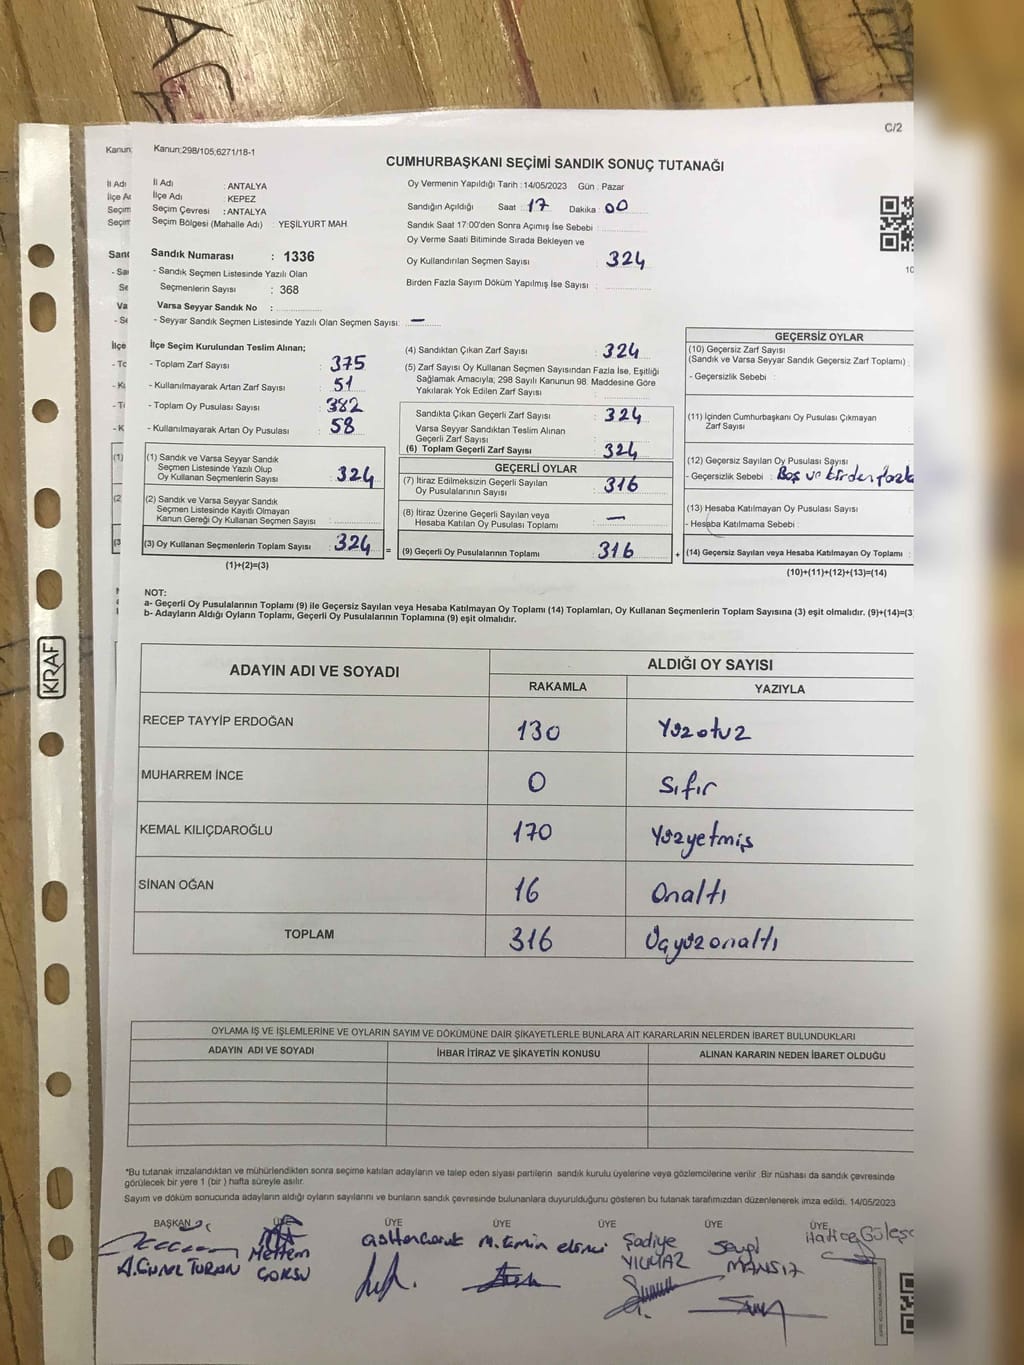 C/2
Kanun;298/105;6271/18-1
CUMHURBAŞKANI SEÇİMİ SANDIK SONUÇ TUTANAĞI
İl Adı : ANTALYA
İlçe Adı : KEPEZ
Seçim Çevresi : ANTALYA
Seçim Bölgesi (Mahalle Adı) : YEŞİLYURT MAH
Oy Vermenin Yapıldığı Tarih : 14/05/2023 Gün : Pazar
Sandığın Açıldığı Saat : 17 Dakika : 00
Sandık Saat 17:00'den Sonra Açımış İse Sebebi :
Oy Verme Saati Bitiminde Sırada Bekleyen ve
Oy Kullandırılan Seçmen Sayısı : 324
Birden Fazla Sayım Döküm Yapılmış İse Sayısı :
Sandık Numarası : 1336
- Sandık Seçmen Listesinde Yazılı Olan
Seçmenlerin Sayısı : 368
Varsa Seyyar Sandık No :
- Seyyar Sandık Seçmen Listesinde Yazılı Olan Seçmen Sayısı: —
İlçe Seçim Kurulundan Teslim Alınan;
- Toplam Zarf Sayısı : 375
- Kullanılmayarak Artan Zarf Sayısı : 51
- Toplam Oy Pusulası Sayısı : 382
- Kullanılmayarak Artan Oy Pusulası : 58
(1) Sandık ve Varsa Seyyar Sandık
Seçmen Listesinde Yazılı Olup
Oy Kullanan Seçmenlerin Sayısı : 324
(2) Sandık ve Varsa Seyyar Sandık
Seçmen Listesinde Kayıtlı Olmayan
Kanun Gereği Oy Kullanan Seçmen Sayısı :
(3) Oy Kullanan Seçmenlerin Toplam Sayısı : 324 =
(1)+(2)=(3)
(4) Sandıktan Çıkan Zarf Sayısı : 324
(5) Zarf Sayısı Oy Kullanan Seçmen Sayısından Fazla İse, Eşitliği
Sağlamak Amacıyla; 298 Sayılı Kanunun 98. Maddesine Göre
Yakılarak Yok Edilen Zarf Sayısı :
Sandıkta Çıkan Geçerli Zarf Sayısı : 324
Varsa Seyyar Sandıktan Teslim Alınan
Geçerli Zarf Sayısı
(6) Toplam Geçerli Zarf Sayısı : 324
GEÇERLİ OYLAR
(7) İtiraz Edilmeksizin Geçerli Sayılan
Oy Pusulalarının Sayısı : 316
(8) İtiraz Üzerine Geçerli Sayılan veya
Hesaba Katılan Oy Pusulası Toplamı : —
(9) Geçerli Oy Pusulalarının Toplamı : 316 +
GEÇERSİZ OYLAR
(10) Geçersiz Zarf Sayısı
(Sandık ve Varsa Seyyar Sandık Geçersiz Zarf Toplamı) :
- Geçersizlik Sebebi :
(11) İçinden Cumhurbaşkanı Oy Pusulası Çıkmayan
Zarf Sayısı
(12) Geçersiz Sayılan Oy Pusulası Sayısı
- Geçersizlik Sebebi : Boş ve birden fazla
(13) Hesaba Katılmayan Oy Pusulası Sayısı
- Hesaba Katılmama Sebebi :
(14) Geçersiz Sayılan veya Hesaba Katılmayan Oy Toplamı :
(10)+(11)+(12)+(13)=(14)
NOT:
a- Geçerli Oy Pusulalarının Toplamı (9) ile Geçersiz Sayılan veya Hesaba Katılmayan Oy Toplamı (14) Toplamları, Oy Kullanan Seçmenlerin Toplam Sayısına (3) eşit olmalıdır. (9)+(14)=(3
b- Adayların Aldığı Oyların Toplamı, Geçerli Oy Pusulalarının Toplamına (9) eşit olmalıdır.
ADAYIN ADI VE SOYADI ALDIĞI OY SAYISI
RAKAMLA YAZIYLA
RECEP TAYYİP ERDOĞAN 130 Yüzotuz
MUHARREM İNCE 0 Sıfır
KEMAL KILIÇDAROĞLU 170 Yüzyetmiş
SİNAN OĞAN 16 Onaltı
TOPLAM 316 Üçyüzonaltı
OYLAMA İŞ VE İŞLEMLERİNE VE OYLARIN SAYIM VE DÖKÜMÜNE DAİR ŞİKAYETLERLE BUNLARA AİT KARARLARIN NELERDEN İBARET BULUNDUKLARI
ADAYIN ADI VE SOYADI İHBAR İTİRAZ VE ŞİKAYETİN KONUSU ALINAN KARARIN NEDEN İBARET OLDUĞU
*Bu tutanak imzalandıktan ve mühürlendikten sonra seçime katılan adayların ve talep eden siyasi partilerin sandık kurulu üyelerine veya gözlemcilerine verilir. Bir nüshası da sandık çevresinde
görülecek bir yere 1 (bir ) hafta süreyle asılır.
Sayım ve döküm sonucunda adayların aldığı oyların sayılarını ve bunların sandık çevresinde bulunanlara duyurulduğunu gösteren bu tutanak tarafımızdan düzenlenerek imza edildi. 14/05/2023
BAŞKAN ÜYE ÜYE ÜYE ÜYE ÜYE ÜYE
A.GÜNEL TURAN Meltem GÖKSU M.Emin ekinci Şadiye YILMAZ Sevgi MANSIZ Hatice Güleş
KRAF